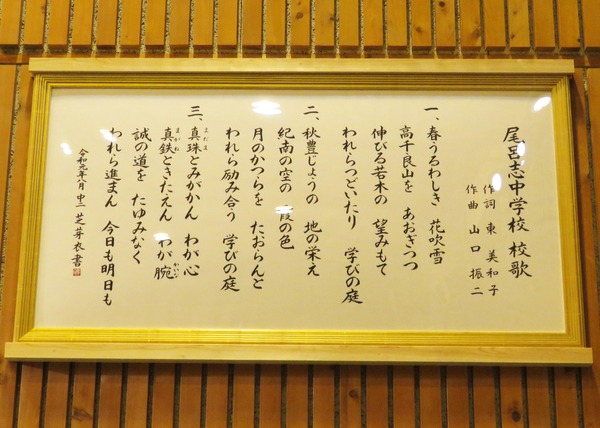 尾呂志中学校 校歌
作詞 東 美和子
作曲 山口 振二
一、春うるわしき 花吹雪
高千良山を あおぎつつ
伸びる若木の 望みもて
われらつどいたり 学びの庭
二、秋豊じょうの 地の栄え
紀南の空の 霞の色
月のかつらを たおらんと
われら励み合う 学びの庭
三、真珠とみがかん わが心
真鉄ときたえん わが腕
誠の道を たゆみなく
われら進まん 今日も明日も
令和元年八月 中二 芝芽衣書